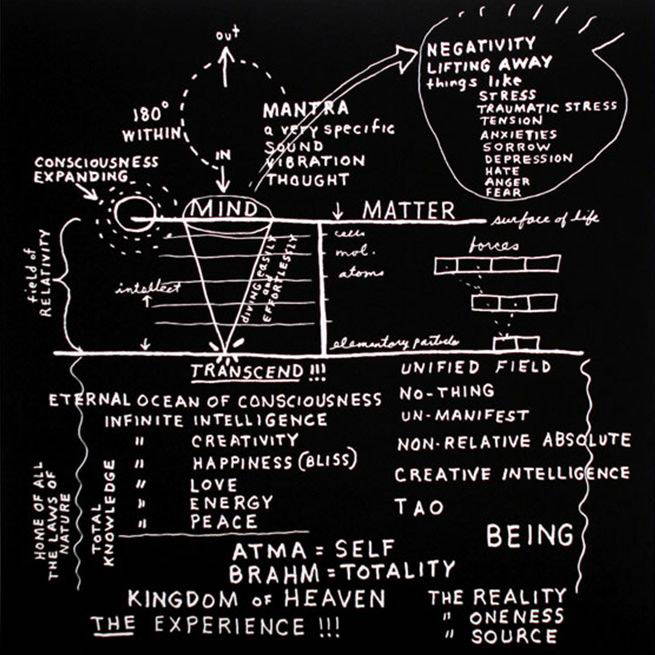 out
180°
WITHIN
IN
MANTRA
a very specific
SOUND
VIBRATION
THOUGHT
NEGATIVITY
LIFTING AWAY
things like
STRESS
TRAUMATIC STRESS
TENSION
ANXIETIES
SORROW
DEPRESSION
HATE
ANGER
FEAR
CONSCIOUSNESS
EXPANDING
MIND
MATTER
surface of life
field of
RELATIVITY
intellect
DIVING EASILY
and
EFFORTLESSLY
cells
mol.
atoms
elementary particle
forces
TRANSCEND !!!
ETERNAL OCEAN OF CONSCIOUSNESS
INFINITE INTELLIGENCE
" CREATIVITY
" HAPPINESS (BLISS)
" LOVE
" ENERGY
" PEACE
HOME OF ALL
THE LAWS OF
NATURE
TOTAL
KNOWLEDGE
UNIFIED FIELD
NO-THING
UN-MANIFEST
NON-RELATIVE ABSOLUTE
CREATIVE INTELLIGENCE
TAO
BEING
ATMA = SELF
BRAHM = TOTALITY
KINGDOM of HEAVEN
THE EXPERIENCE !!!
THE REALITY
" ONENESS
" SOURCE